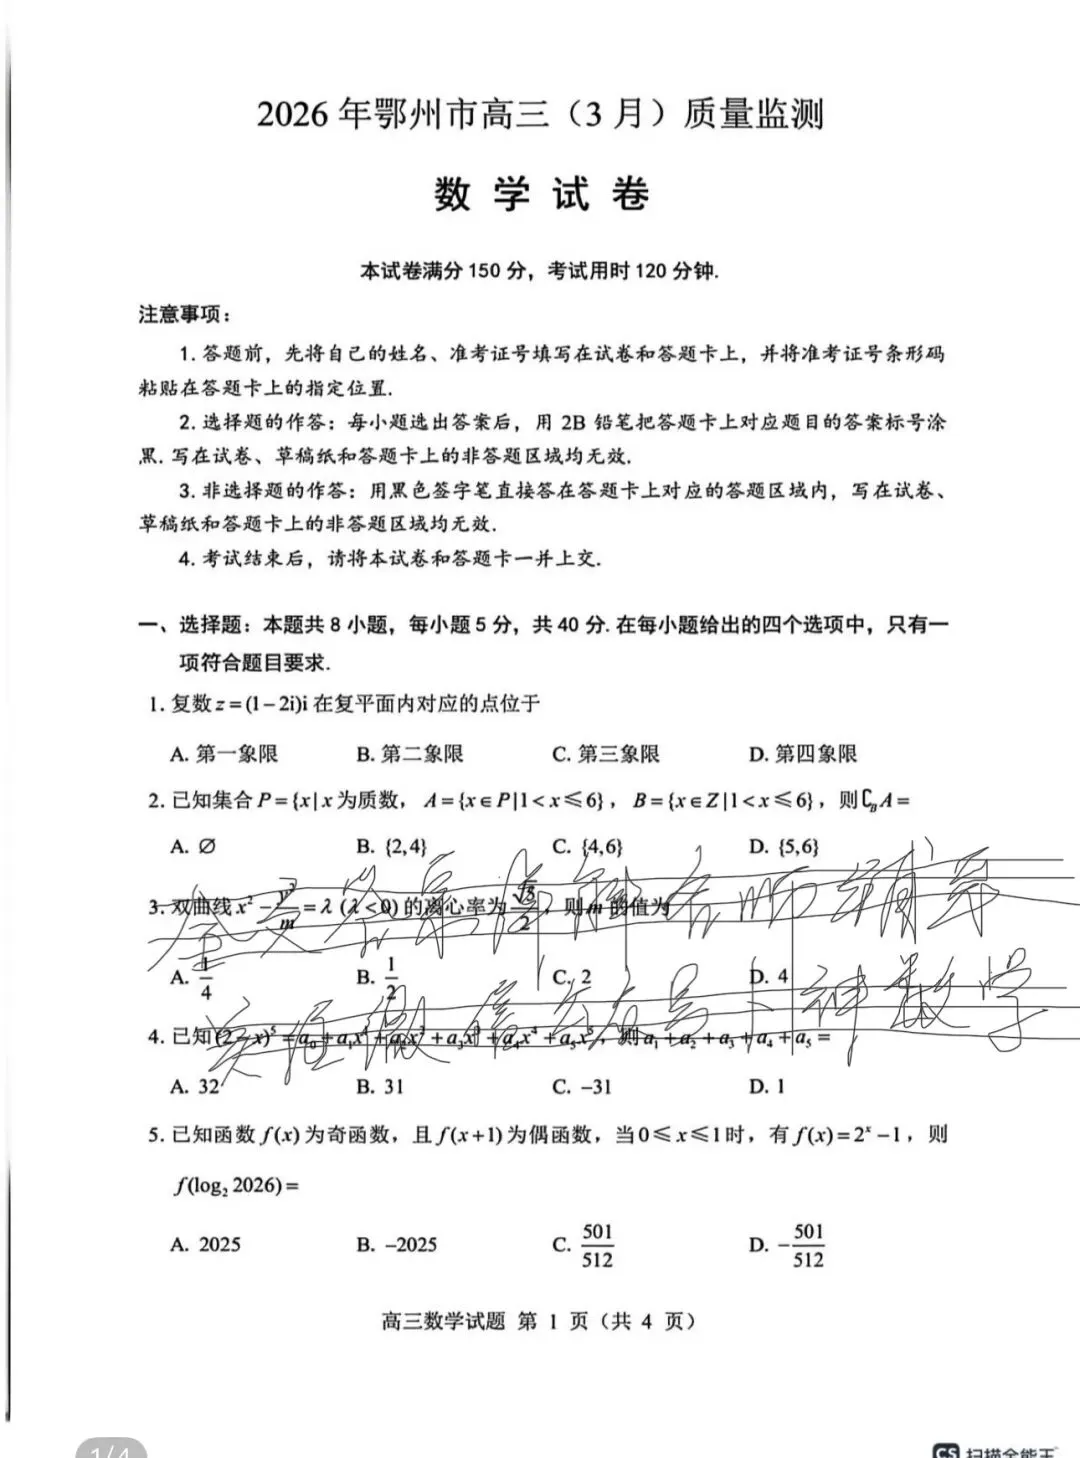 2026年鄂州市高三（3月）质量监测
数学试卷
本试卷满分150分，考试用时120分钟.
注意事项：
1.答题前，先将自己的姓名、准考证号填写在试卷和答题卡上，并将准考证号条形码
粘贴在答题卡上的指定位置.
2.选择题的作答：每小题选出答案后，用2B铅笔把答题卡上对应题目的答案标号涂
黑.写在试卷、草稿纸和答题卡上的非答题区域均无效.
3.非选择题的作答：用黑色签字笔直接答在答题卡上对应的答题区域内，写在试卷、
草稿纸和答题卡上的非答题区域均无效.
4.考试结束后，请将本试卷和答题卡一并上交.
一、选择题：本题共8小题，每小题5分，共40分.在每小题给出的四个选项中，只有一
项符合题目要求.
1.复数z=(1−2i)i在复平面内对应的点位于
A. 第一象限 B. 第二象限 C. 第三象限 D. 第四象限
2.已知集合P={x|x为质数，A={x∈P|1<x⩽6}，B={x∈Z|1<x⩽6}，则∁_B A=
A. ∅ B. {2,4} C. {4,6} D. {5,6}
3.双曲线x²−y²/m=λ(λ<0)的离心率为√5/2，则m的值为
A. 1/4 B. 1/2 C. 2 D. 4
4.已知(2−x)⁵=a₀+a₁x+a₂x²+a₃x³+a₄x⁴+a₅x⁵，则a₁+a₂+a₃+a₄+a₅=
A. 32 B. 31 C. −31 D. 1
5.已知函数f(x)为奇函数，且f(x+1)为偶函数，当0⩽x⩽1时，有f(x)=2ˣ−1，则
f(log₂2026)=
A. 2025 B. −2025 C. 501/512 D. −501/512
高三数学试题 第 1 页（共 4 页）
1/4
CS 扫描全能王